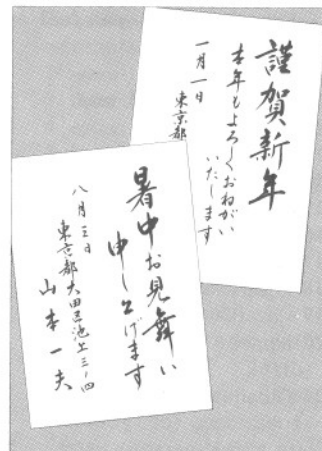 謹賀新年
本年もよろしくおねがい
いたします
一月一日
東京都
暑中お見舞い
申し上げます
八月三日
東京都大田区池上三ノ四
山本一夫